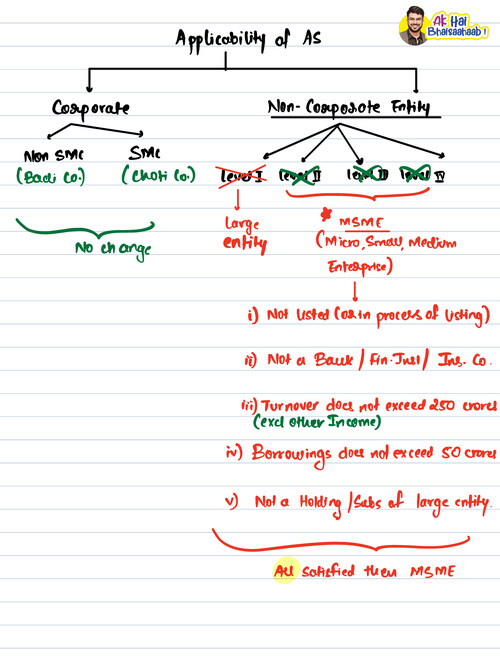 AK Hai
Bhaisaahaab!
Applicability of AS
Corporate
Non-Corporate Entity
Non SMC
(Badi Co.)
SMC
(Choti Co.)
Level I
Level II
Level III
Level IV
No change
large
entity
MSME
(Micro, Small, Medium
Enterprise)
i) Not listed (or in process of listing)
ii) Not a Bank / Fin. Inst / Ins. Co.
iii) Turnover does not exceed 250 crores
(excl other Income)
iv) Borrowings does not exceed 50 crores
v) Not a Holding / Subs of large entity.
All satisfied then MSME